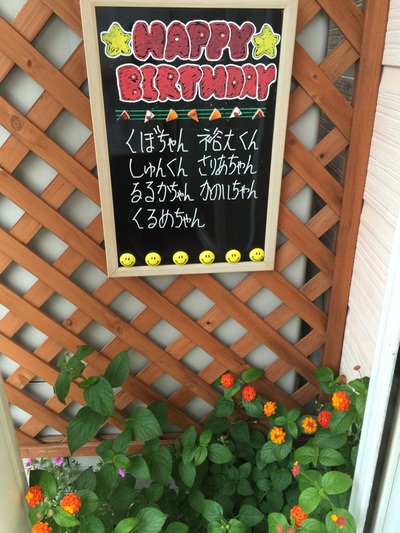 HAPPY
BIRTHDAY
くぼちゃん 裕大くん
しゅんくん さりあちゃん
るるかちゃん かのいちゃん
くるめちゃん